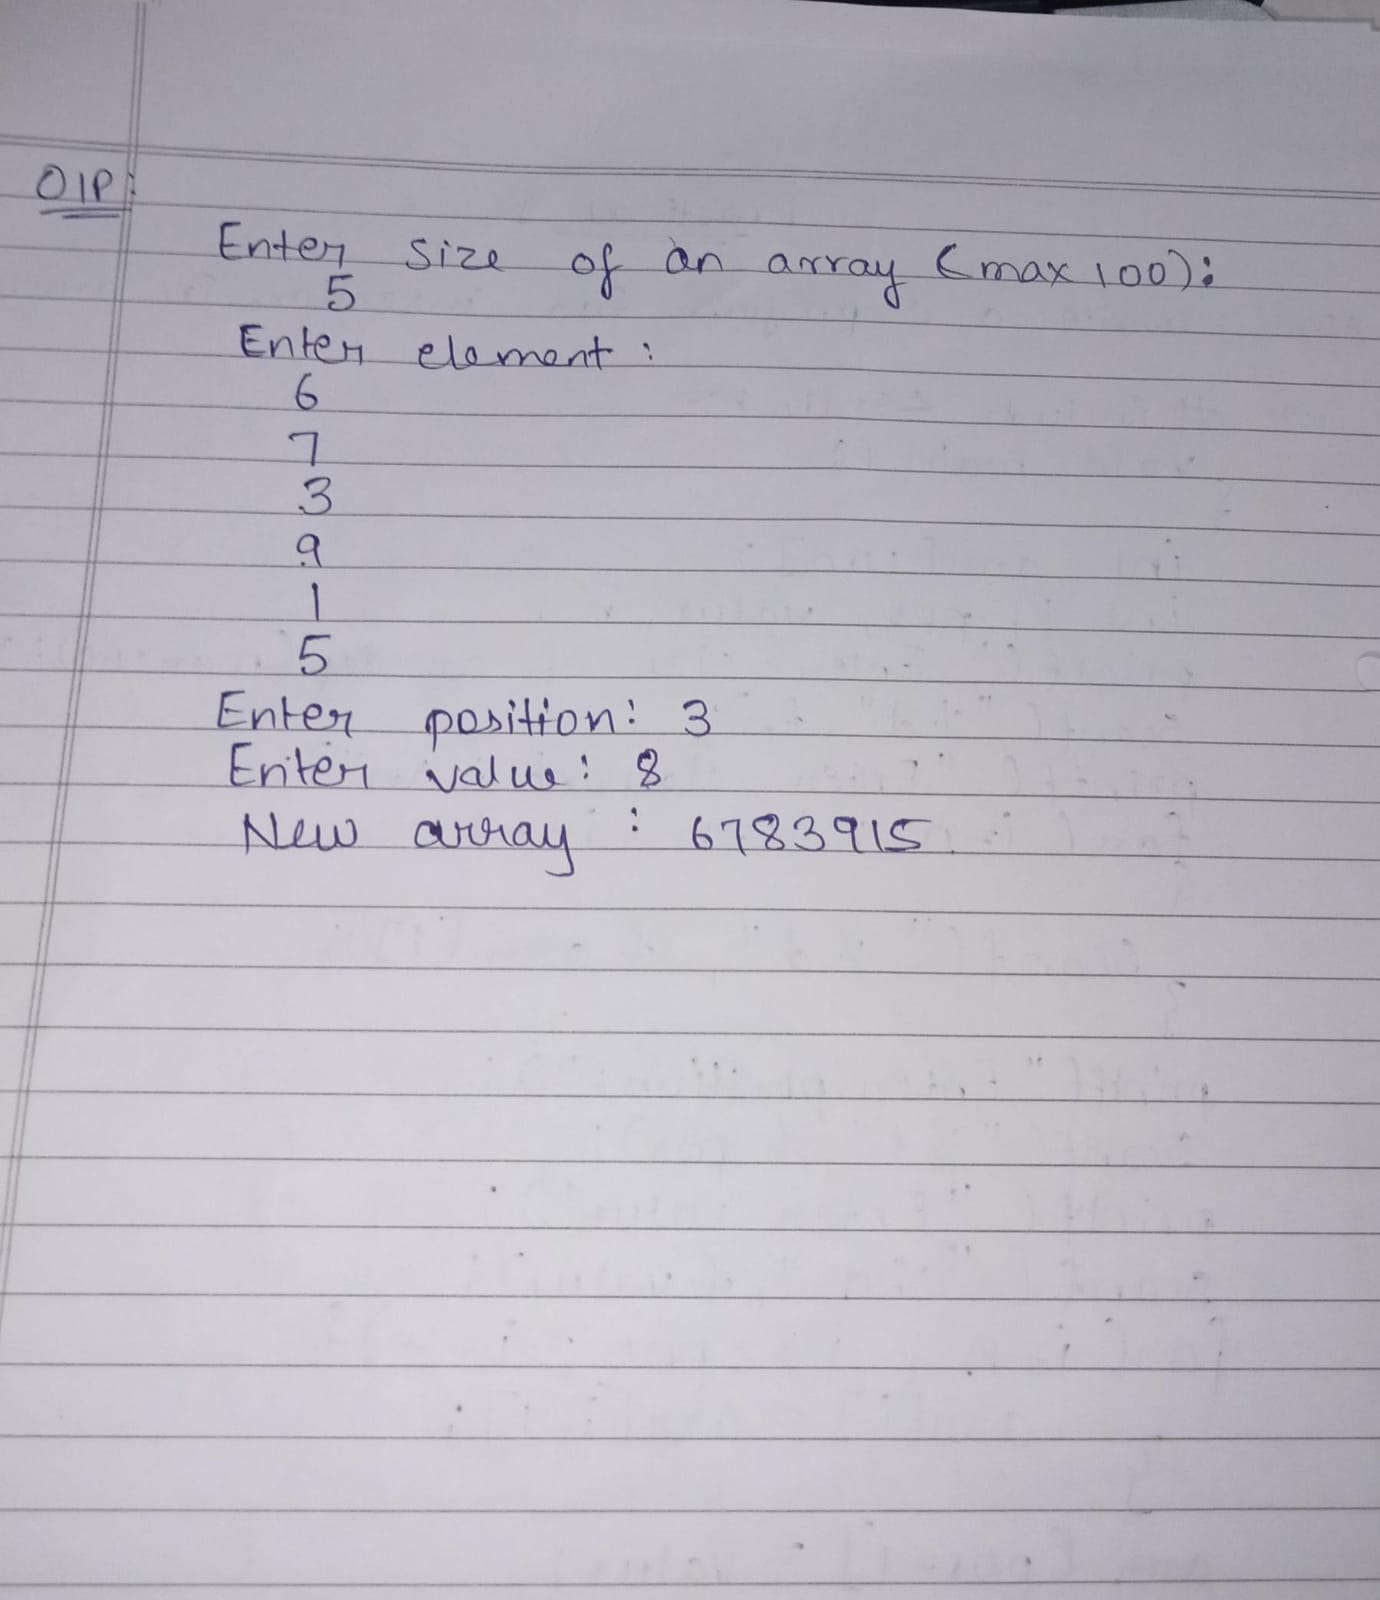 O/P:
Enter size of an array (max 100):
5
Enter element :
6
7
3
9
1
5
Enter position: 3
Enter value: 8
New array : 6783915